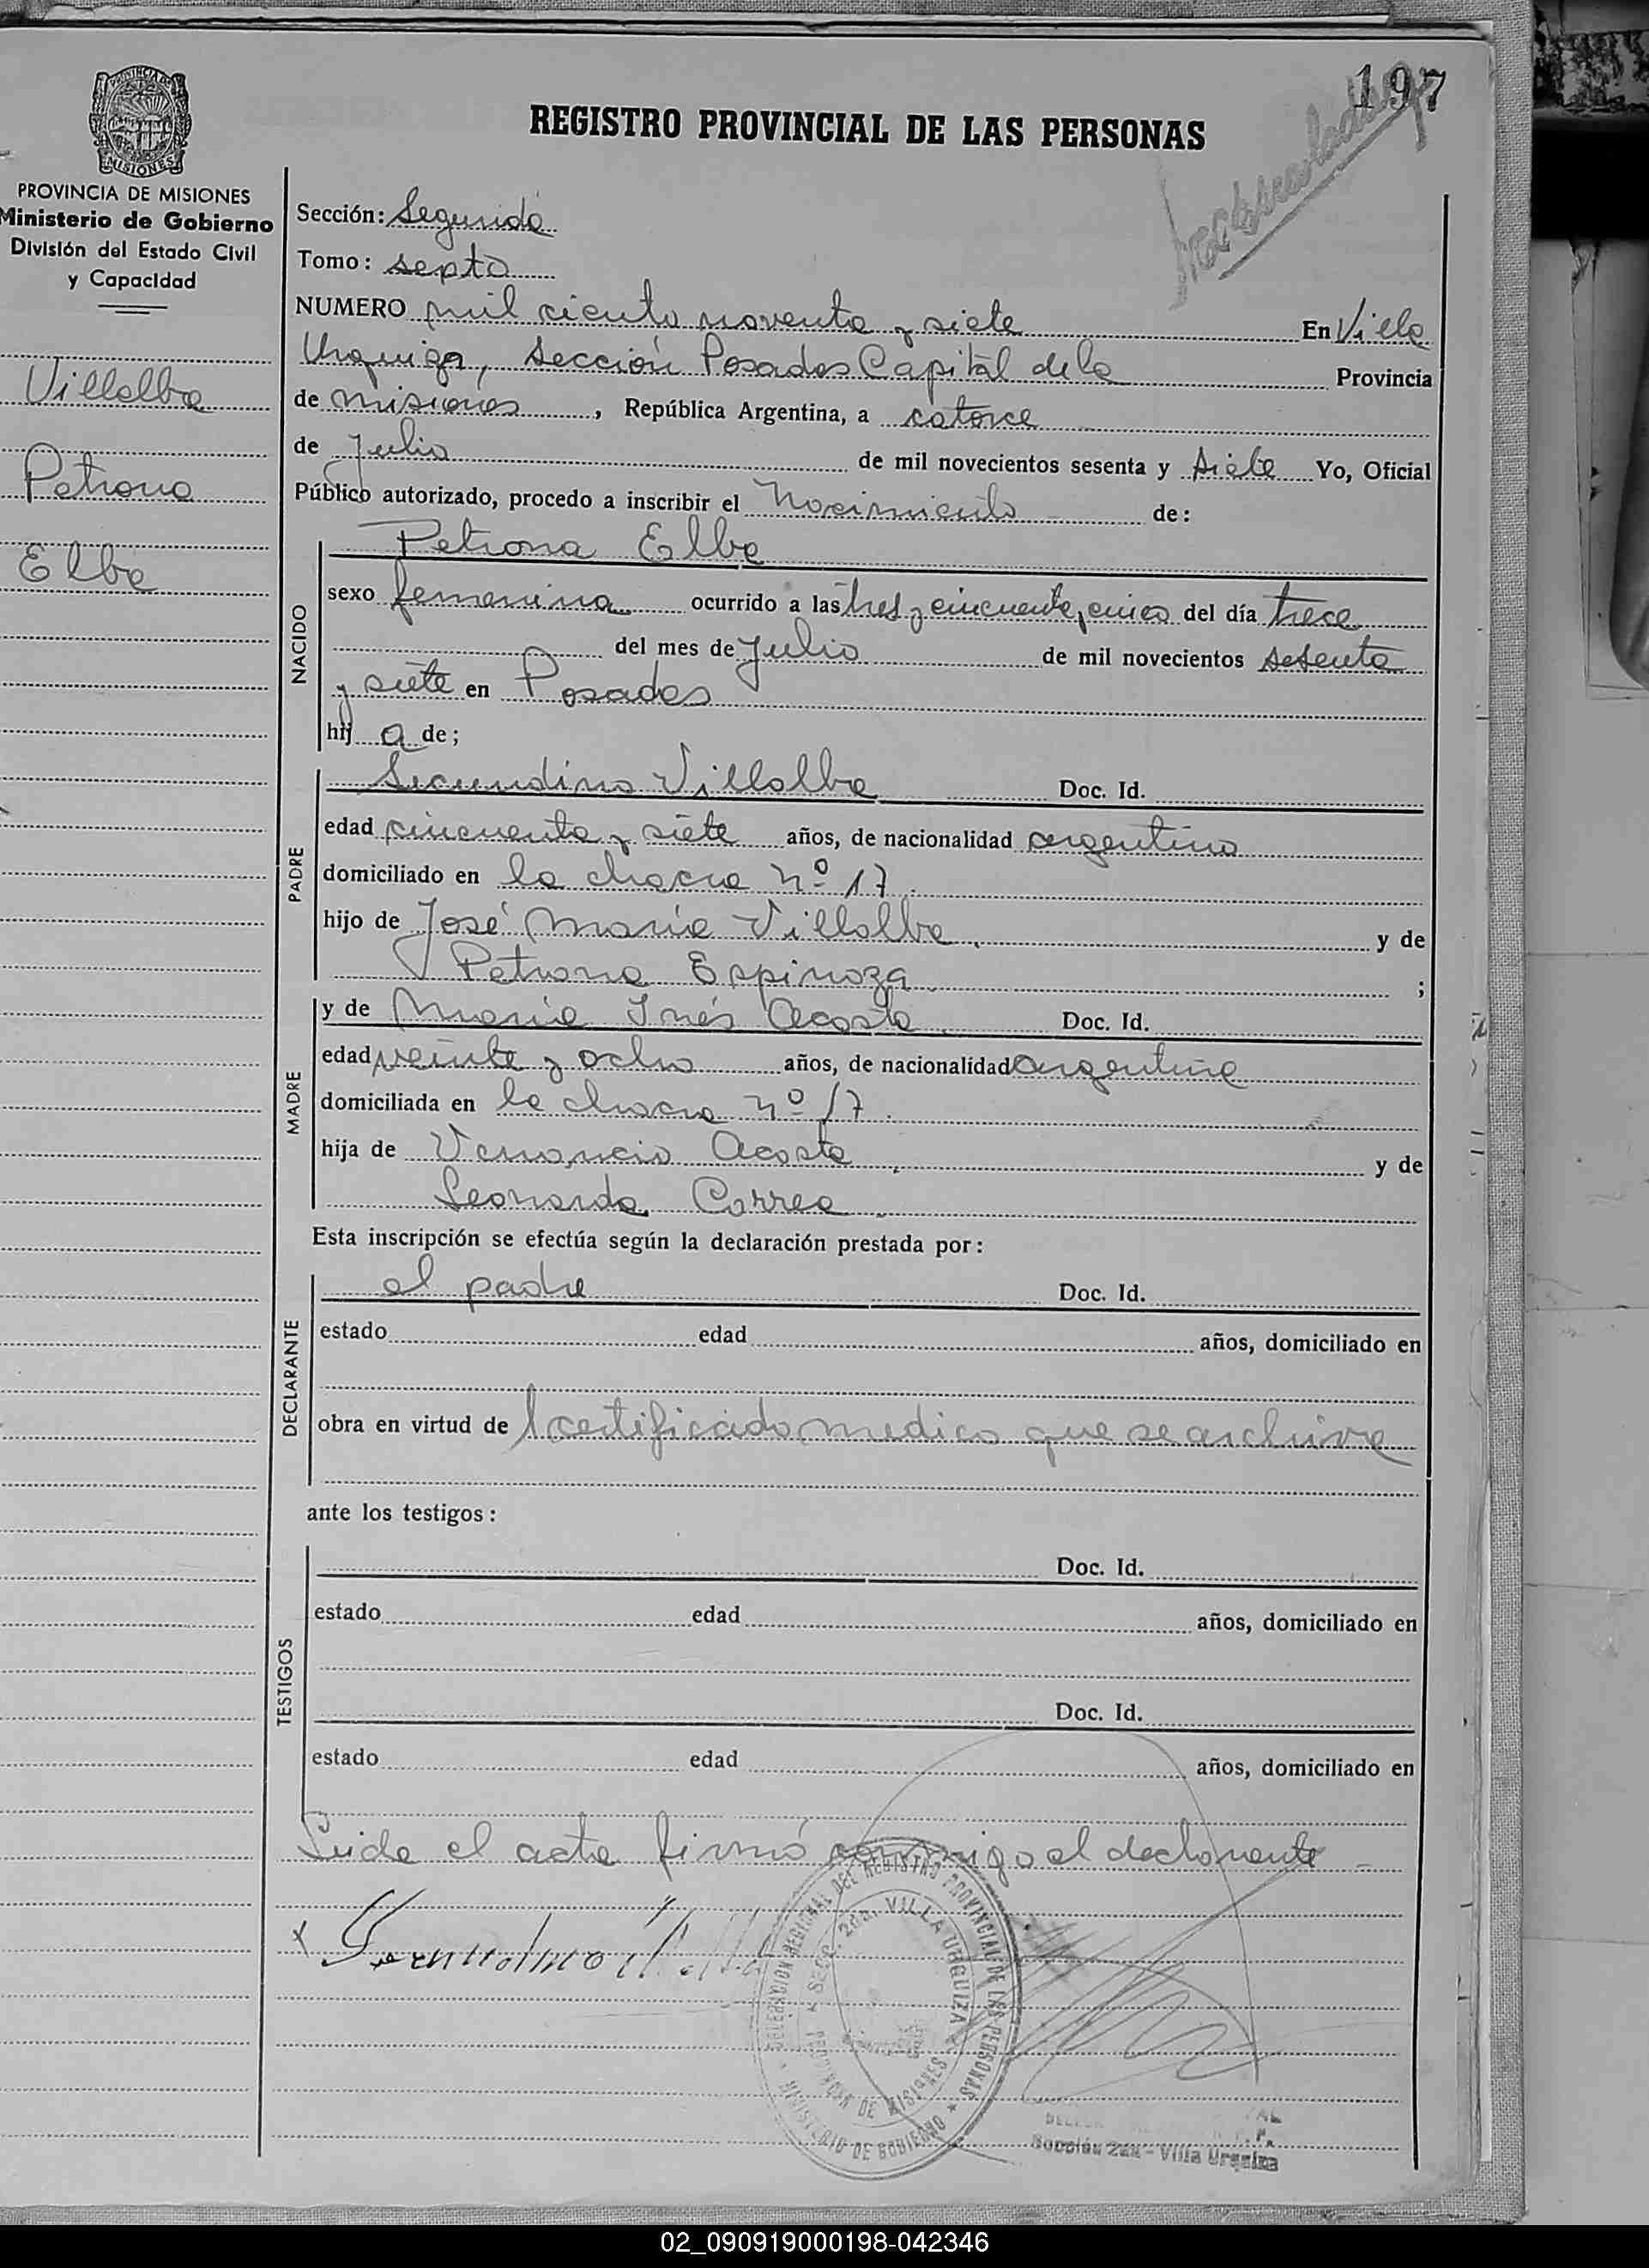 197
REGISTRO PROVINCIAL DE LAS PERSONAS
PROVINCIA DE MISIONES
Ministerio de Gobierno
División del Estado Civil
y Capacidad
Villalba
Petrona
Elba
Sección: Segunda
Tomo: septo
NUMERO mil ciento noventa y siete En Villa
Urquiza, Sección Posadas Capital de la Provincia
de misiones, República Argentina, a catorce
de Julio de mil novecientos sesenta y siete Yo, Oficial
Público autorizado, procedo a inscribir el Nacimiento de:
NACIDO
Petrona Elba
sexo femenina ocurrido a las tres y cincuenta y cinco del día trece
del mes de Julio de mil novecientos sesenta
y siete en Posadas
hij a de;
PADRE
Secundino Villalba Doc. Id.
edad cincuenta y siete años, de nacionalidad argentino
domiciliado en la chacra nº 17.
hijo de José María Villalba, y de
Petrona Espinoza. ;
MADRE
y de María Inés Acosta. Doc. Id.
edad veinte y ocho años, de nacionalidad argentina
domiciliada en la chacra nº 17.
hija de Venancio Acosta, y de
Leonarda Correa.
Esta inscripción se efectúa según la declaración prestada por:
DECLARANTE
el padre Doc. Id.
estado edad años, domiciliado en
obra en virtud de 1 certificado medico que se archiva
ante los testigos:
TESTIGOS
Doc. Id.
estado edad años, domiciliado en
Doc. Id.
estado edad años, domiciliado en
Leida el acta firmó conmigo el declarante -
x
DELEGACION REGIONAL DEL REGISTRO PROVINCIAL DE LAS PERSONAS
SECC. 2da. VILLA URQUIZA
PROVINCIA DE MISIONES
MINISTERIO DE GOBIERNO
Sección 2da - Villa Urquiza
02_090919000198-042346